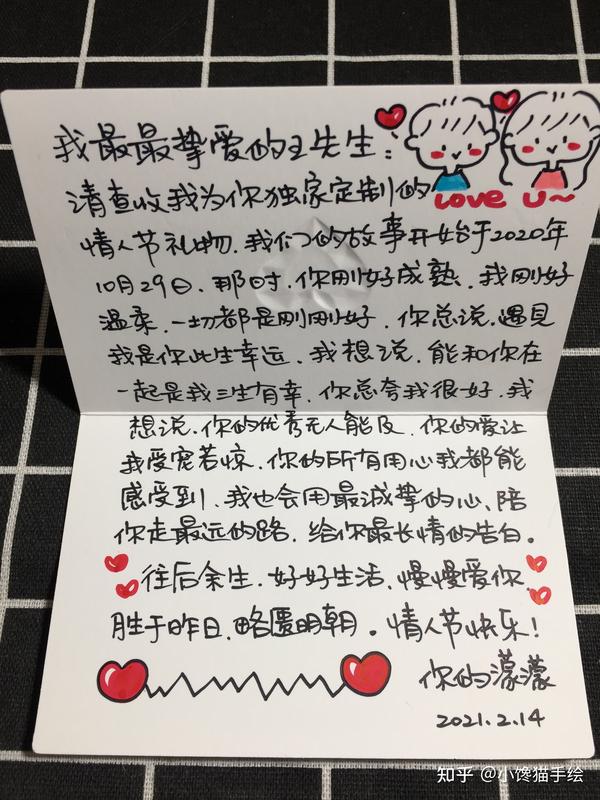 我最最挚爱的王先生：
Love u~
请查收我为你独家定制的
情人节礼物.我们的故事开始于2020年
10月29日.那时.你刚好成熟.我刚好
温柔.一切都是刚刚好.你总说.遇见
我是你此生幸运.我想说.能和你在
一起是我三生有幸.你总夸我很好.我
想说.你的优秀无人能及.你的爱让
我受宠若惊.你的所有用心我都能
感受到.我也会用最诚挚的心、陪
你走最远的路.给你最长情的告白。
往后余生.好好生活.慢慢爱你.
胜于昨日.略匿明朝。情人节快乐！
你的濛濛
2021.2.14
知乎 @小馋猫手绘